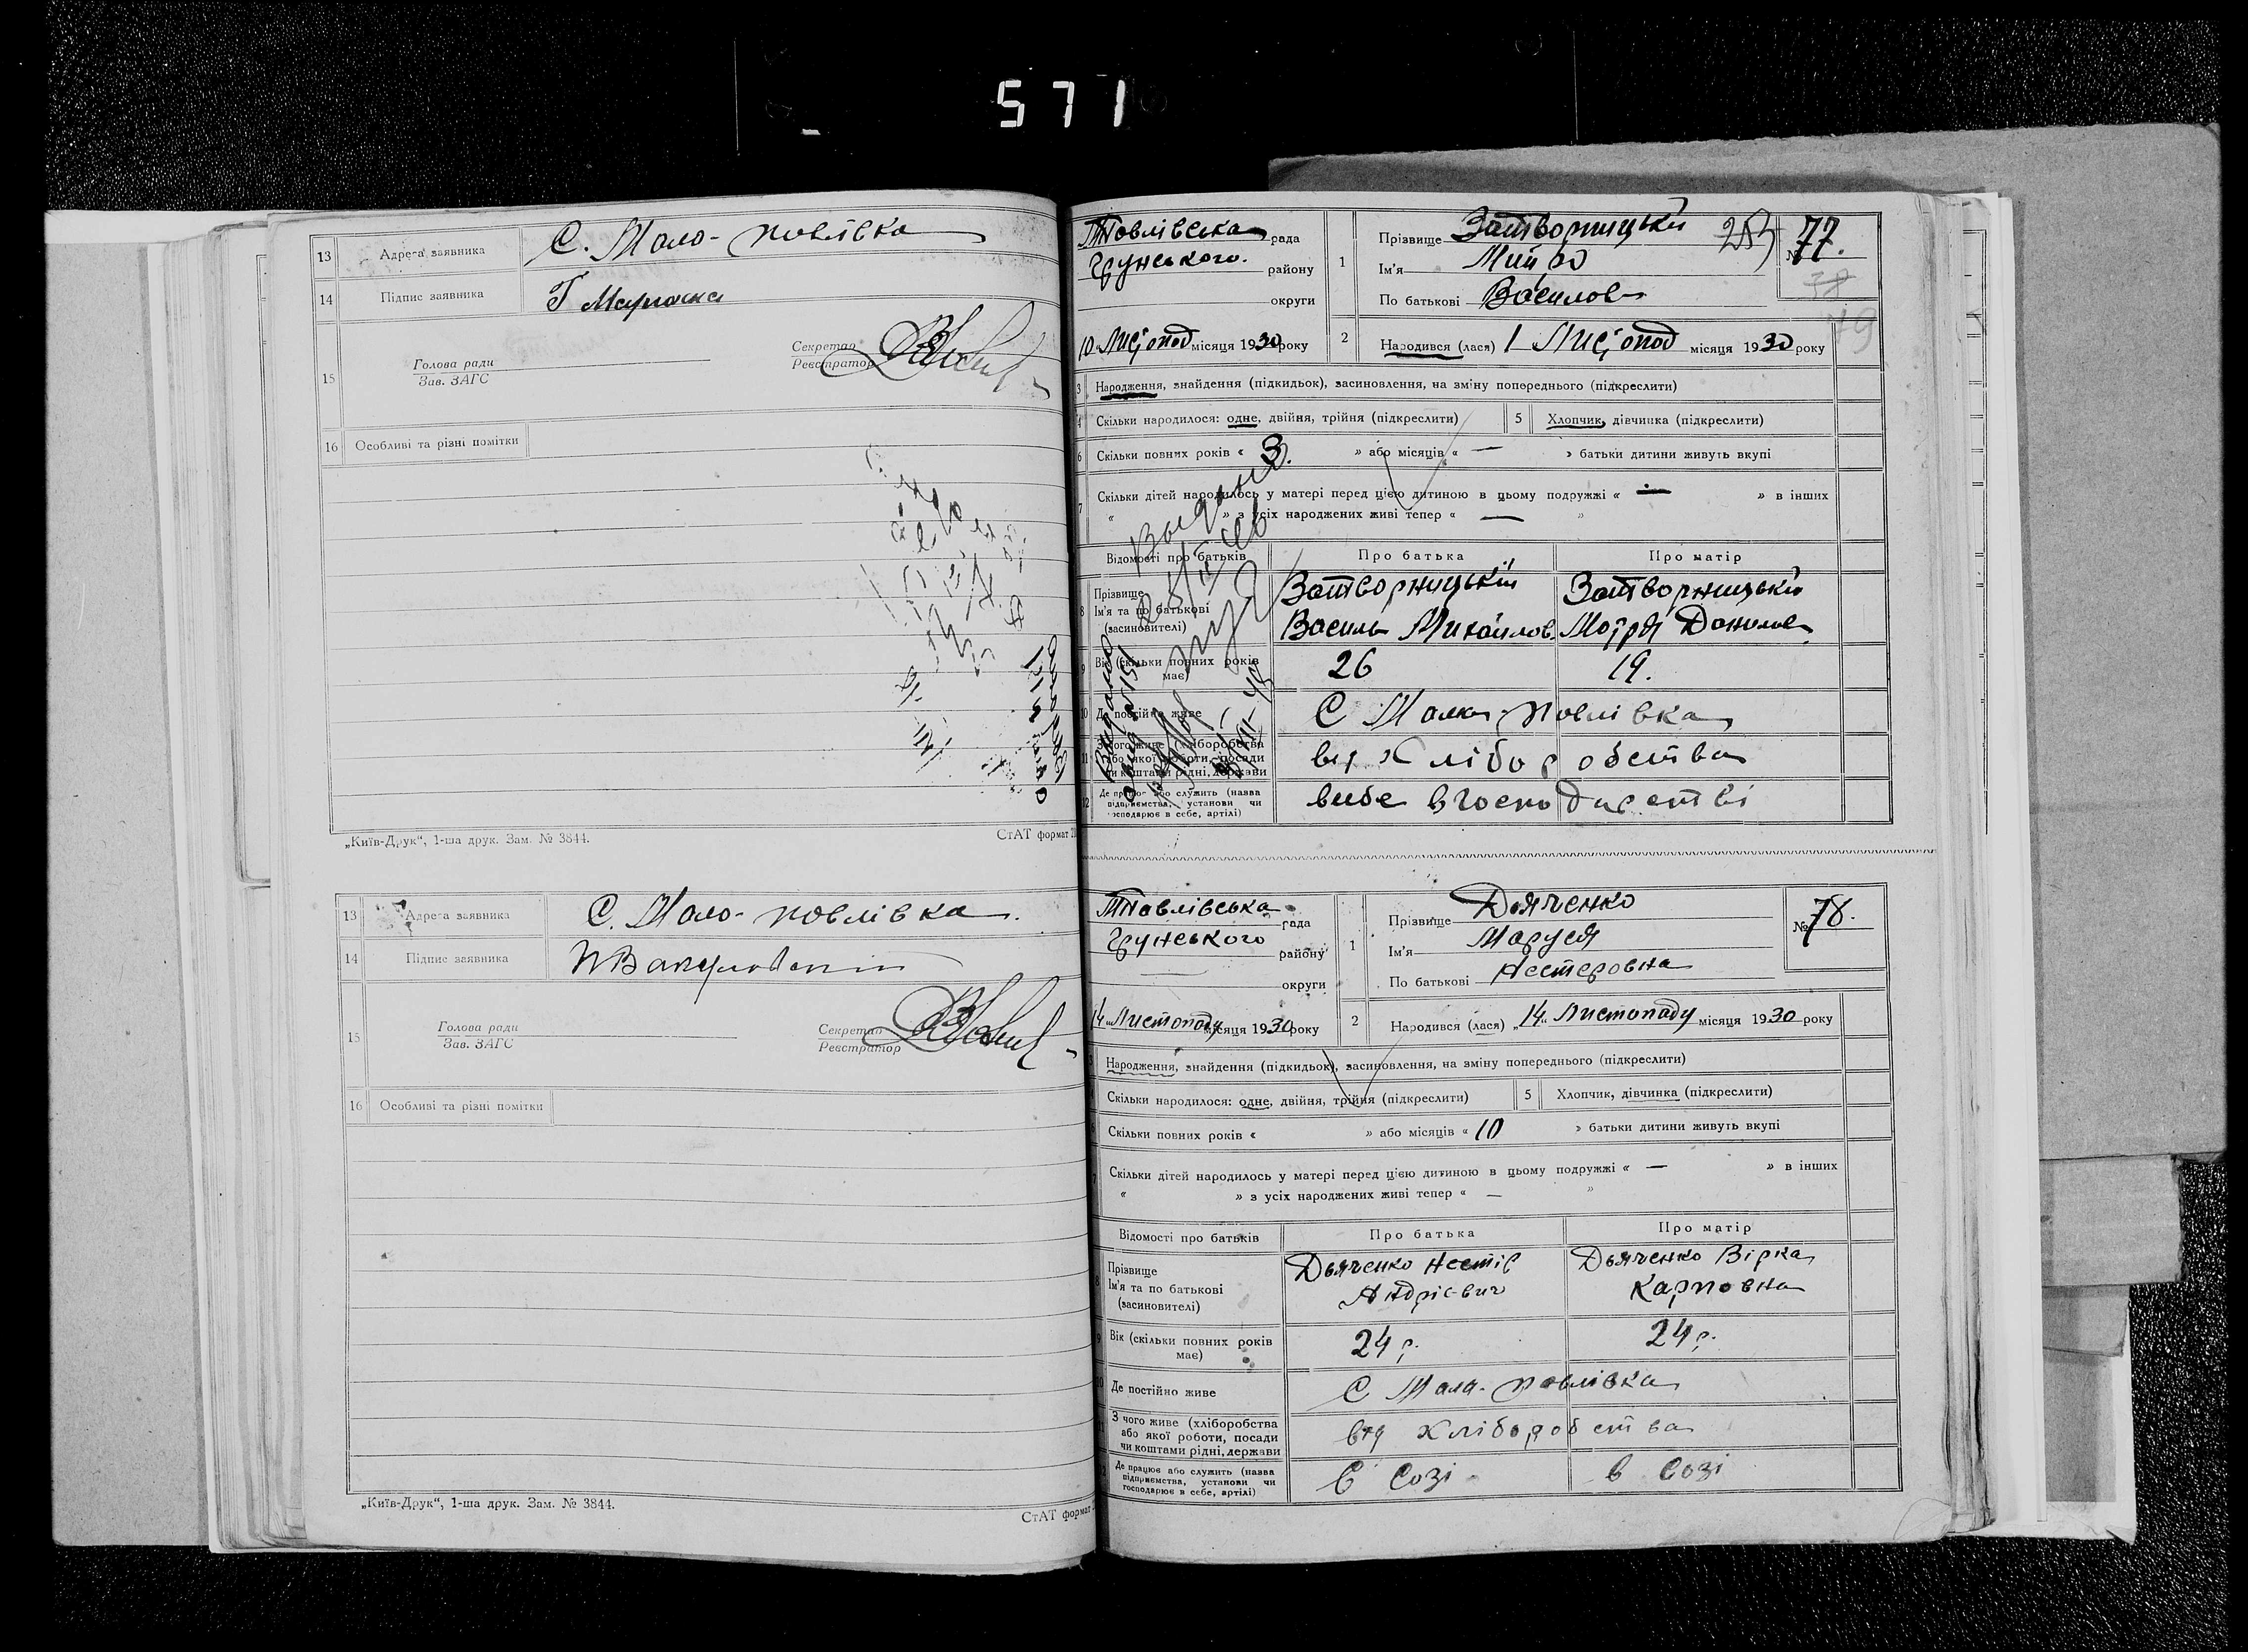 571
13 Адреса заявника С. Мало-павлівка
14 Підпис заявника
15 Голова ради
Зав. ЗАГС
Секретар
Реєстратор
16 Особливі та різні помітки
„Київ-Друк“, 1-ша друк. Зам. № 3844.
СтАТ формат
13 Адреса заявника С. Мало-павлівка.
14 Підпис заявника
15 Голова ради
Зав. ЗАГС
Секретар
Реєстратор
16 Особливі та різні помітки
„Київ-Друк“, 1-ша друк. Зам. № 3844.
СтАТ формат
МПавлівська рада
Грунського. району
округи
10 місяця 1930 року
1 Прізвище Затворницькій
Ім’я
По батькові Василов
№ 77.
2 Народився (лася) 1 місяця 1930 року
3 Народження, знайдення (підкидьок), засиновлення, на зміну попереднього (підкреслити)
4 Скільки народилося: одне, двійня, трійня (підкреслити)
5 Хлопчик, дівчинка (підкреслити)
6 Скільки повних років « 3. » або місяців « — » батьки дитини живуть вкупі
7 Скільки дітей народилось у матері перед цією дитиною в цьому подружжі « — » в інших
« » з усіх народжених живі тепер « — »
Відомості про батьків Про батька Про матір
8 Прізвище
Ім’я та по батькові
(засиновителі)
Затворницькій
Василь Михайлов.
Затворницькій
Мотря Данилов
9 Вік (скільки повних років має) 26 19.
10 Де постійно живе С Мало-павлівка
11 З чого живе (хліборобства
або якої роботи, посади
чи коштами рідні, держави
від Хліборобства
12 Де працює або служить (назва
підприємства, установи чи
господарює в себе, артілі)
всебе в господарстві
МПавлівська рада
Грунського району
округи
14 „Листопаду місяця 1930 року
1 Прізвище Дьяченко
Ім’я Маруся
По батькові Нестеровна
№ 78.
2 Народився (лася) „14“ Листопаду місяця 1930 року
Народження, знайдення (підкидьок), засиновлення, на зміну попереднього (підкреслити)
Скільки народилося: одне, двійня, трійня (підкреслити)
5 Хлопчик, дівчинка (підкреслити)
Скільки повних років « » або місяців « 10 » батьки дитини живуть вкупі
Скільки дітей народилось у матері перед цією дитиною в цьому подружжі « — » в інших
« » з усіх народжених живі тепер « — »
Відомості про батьків Про батька Про матір
8 Прізвище
Ім’я та по батькові
(засиновителі)
Дьяченко Нестір
Андрієвич
Дьяченко Вірка
Карповна
9 Вік (скільки повних років має) 24 р. 24 р.
Де постійно живе С Мало-павлівка
З чого живе (хліборобства
або якої роботи, посади
чи коштами рідні, держави
від хліборобства
Де працює або служить (назва
підприємства, установи чи
господарює в себе, артілі)
в Созі в Созі